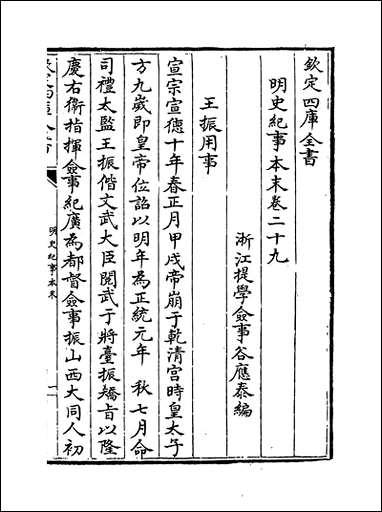 欽定四庫全書
明史紀事本末卷二十九
浙江提學僉事谷應泰編
王振用事
宣宗宣德十年春正月甲戌帝崩于乾清宫時皇太子
方九歲即皇帝位詔以明年為正統元年　秋七月命
司禮太監王振偕文武大臣閲武于將臺振矯旨以隆
慶右衛指揮僉事紀廣為都督僉事振山西大同人初
明史紀事本末
一